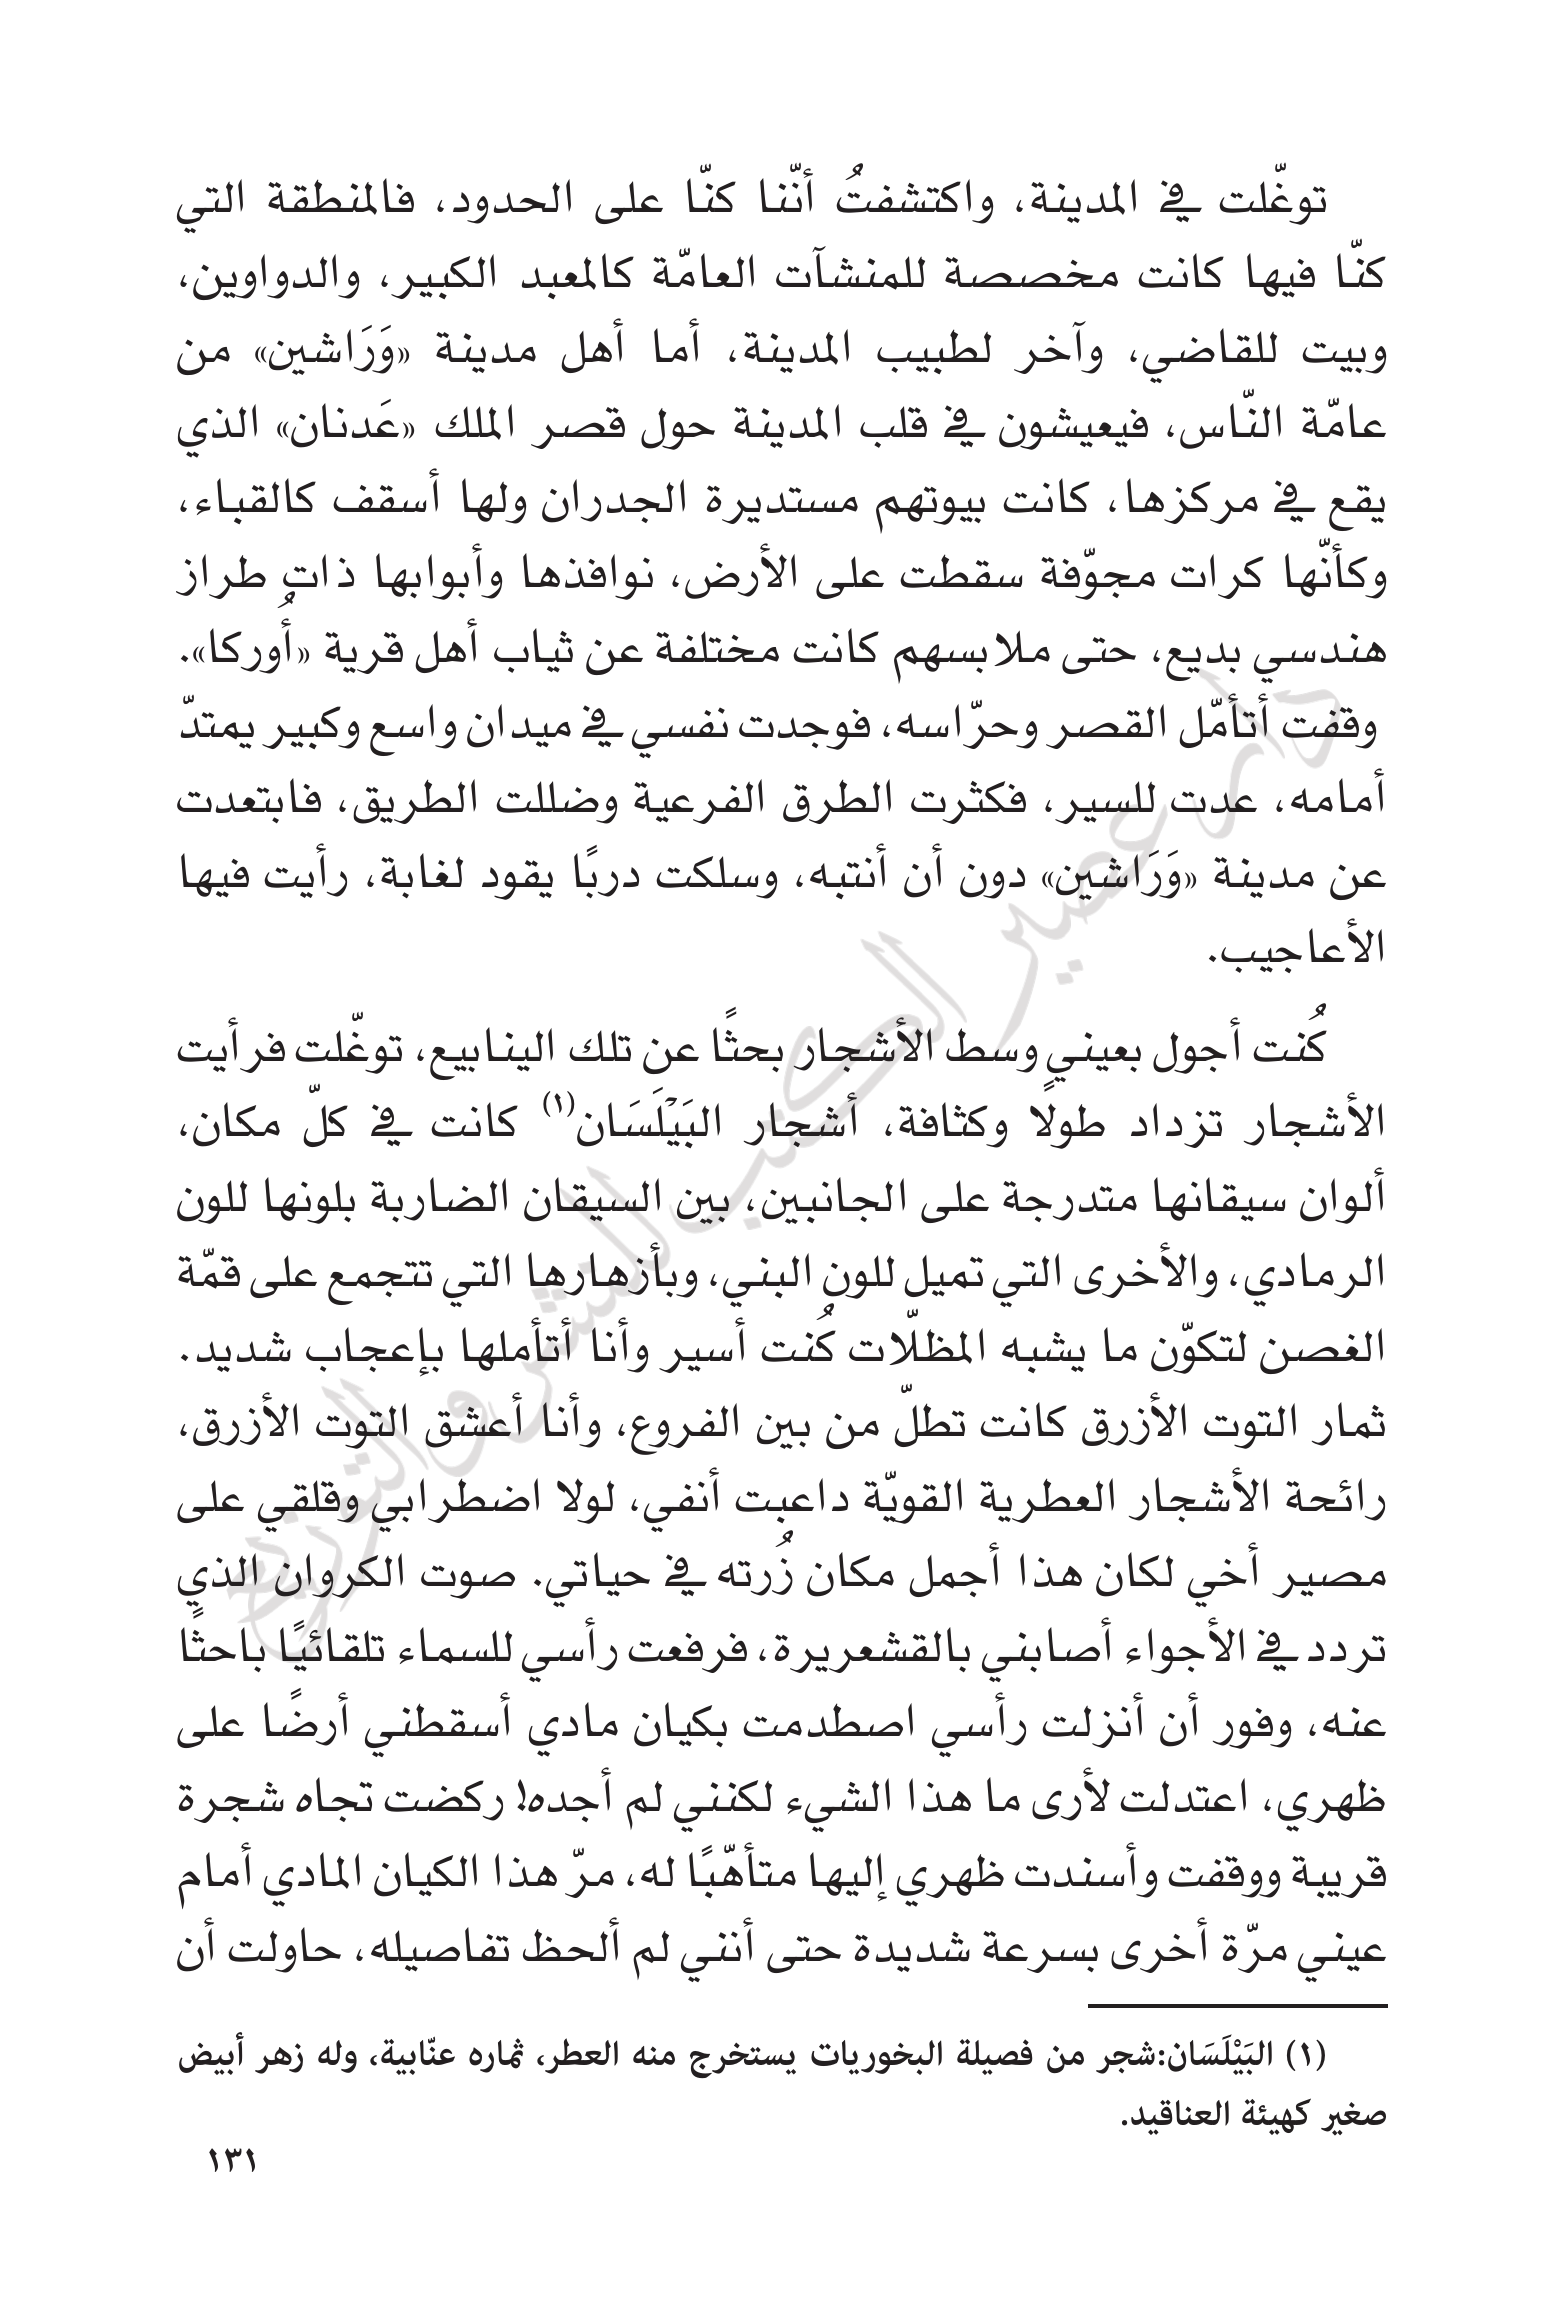 توغّلت في المدينة، واكتشفتُ أنّنا كنّا على الحدود، فالمنطقة التي
كنّا فيها كانت مخصصة للمنشآت العامّة كالمعبد الكبير، والدواوين،
وبيت للقاضي، وآخر لطبيب المدينة، أما أهل مدينة «وَرَاشين» من
عامّة النّاس، فيعيشون في قلب المدينة حول قصر الملك «عَدنان» الذي
يقع في مركزها، كانت بيوتهم مستديرة الجدران ولها أسقف كالقباء،
وكأنّها كرات مجوّفة سقطت على الأرض، نوافذها وأبوابها ذات طراز
هندسي بديع، حتى ملابسهم كانت مختلفة عن ثياب أهل قرية «أُوركا».
وقفت أتأمّل القصر وحرّاسه، فوجدت نفسي في ميدان واسع وكبير يمتدّ
أمامه، عدت للسير، فكثرت الطرق الفرعية وضللت الطريق، فابتعدت
عن مدينة «وَرَاشين» دون أن أنتبه، وسلكت دربًا يقود لغابة، رأيت فيها
الأعاجيب.
كُنت أجول بعيني وسط الأشجار بحثًا عن تلك الينابيع، توغّلت فرأيت
الأشجار تزداد طولًا وكثافة، أشجار البَيْلَسَان(١) كانت في كلّ مكان،
ألوان سيقانها متدرجة على الجانبين، بين السيقان الضاربة بلونها للون
الرمادي، والأخرى التي تميل للون البني، وبأزهارها التي تتجمع على قمّة
الغصن لتكوّن ما يشبه المظلّات كُنت أسير وأنا أتأملها بإعجاب شديد.
ثمار التوت الأزرق كانت تطلّ من بين الفروع، وأنا أعشق التوت الأزرق،
رائحة الأشجار العطرية القويّة داعبت أنفي، لولا اضطرابي وقلقي على
مصير أخي لكان هذا أجمل مكان زُرته في حياتي. صوت الكروان الذي
تردد في الأجواء أصابني بالقشعريرة، فرفعت رأسي للسماء تلقائيًا باحثًا
عنه، وفور أن أنزلت رأسي اصطدمت بكيان مادي أسقطني أرضًا على
ظهري، اعتدلت لأرى ما هذا الشيء لكنني لم أجده! ركضت تجاه شجرة
قريبة ووقفت وأسندت ظهري إليها متأهّبًا له، مرّ هذا الكيان المادي أمام
عيني مرّة أخرى بسرعة شديدة حتى أنني لم ألحظ تفاصيله، حاولت أن
(١) البَيْلَسَان:شجر من فصيلة البخوريات يستخرج منه العطر، ثماره عنّابية، وله زهر أبيض
صغير كهيئة العناقيد.
١٣١
دار عصير الكتب للنشر والتوزيع